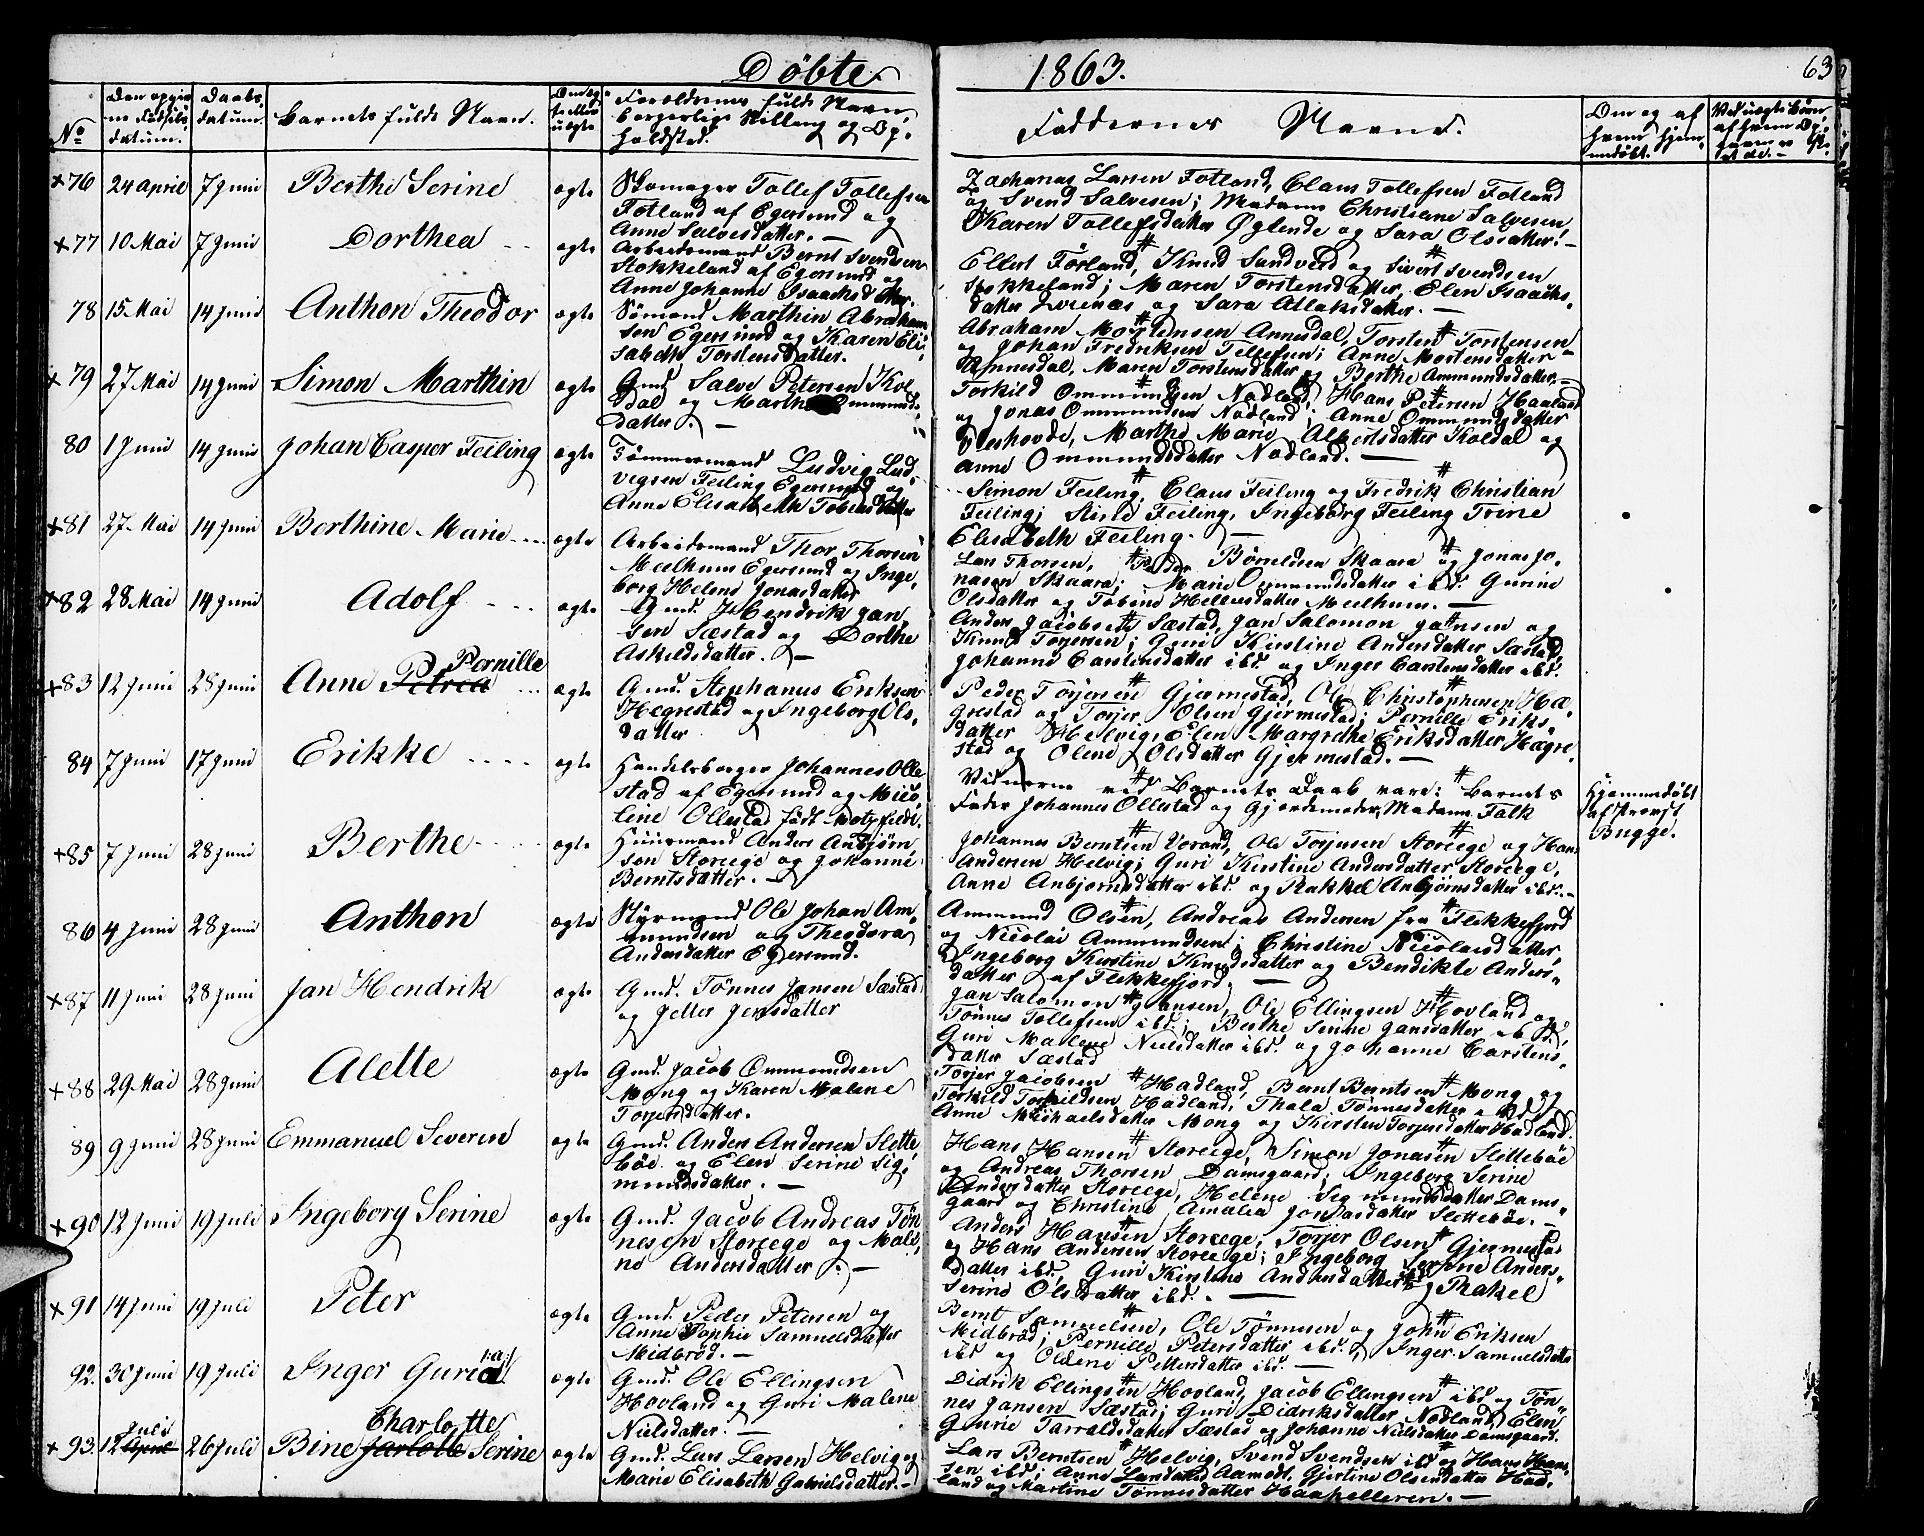 Döbte 1863. 63
No
Den opgivne Fødsels datum.
Daabs datum.
Barnets fulde Navn.
Om ægte eller uægte
Forældrenes fulde Navn, borgerlige Stilling og Opholdsted.
Faddernes Navne.
Om og af hvem hjemmedøbt.
Ved uægte Børn,
+76 24 April 7 Juni Berthe Serine ægte
Skomager Tollef Tollefsen
Fotland af Egersund og
Anne Salvesdatter. —
Zacharias Larsen Fotland, Claus Tollefsen Fotland
og Svend Salvesen; Madame Christiane Salvesen,
Karen Tollefsdatter Øglende og Sara Olsdatter! —
+77 10 Mai 7 Juni Dorthea ægte
Arbeidsmand Bernt Svendsen
Stokkeland af Egersund og
Anne Johanne Isaachsdatter.
Ellert Förland, Knud Sandved og Sivert Svendsen
Stokkeland; Maren Torstensdatter, Elen Isaachs-
datter og Sara Atlaksdatter. —
78 15 Mai 14 Juni Anthon Theodor ægte
Sömand Marthin Abraham-
sen Egersund og Karen Eli-
sabeth Torstensdatter.
Abraham Mortensen Annesdal, Torsten Torstensen
og Johan Fredriksen Tellefsen; Anne Mortensdatter
Annesdal, Maren Torstensdatter og Berthe Ammundsdatter. —
+79 27 Mai 14 Juni Simon Marthin ægte
Gmd. Salve Petersen Kol-
dal og Marthe Ommunds-
datter. —
Torkild Ommundsen Nodland, Hans Petersen Haaland
og Jonas Ommundsen Nodland; Anne Ommundsdatter
Marthe Marie Albertsdatter Koldal og
Anne Ommundsdatter Nodland. —
80 1 Juni 14 Juni Johan Casper Feiling ægte
Tömmermand Ludvig Lud-
vigsen Feiling Egersund og
Anne Elisabeth Tobiasdatter
Simon Feiling, Claus Feiling og Fredrik Christian
Feiling; Feiling, Ingeborg Feiling Trine
Elisabeth Feiling. —
+81 27 Mai 14 Juni Berthine Marie ægte
Arbeidsmand Thor Thorsen
Meelhuus Egersund og Inge-
borg Helene Jonasdatter
Lars Thorsen, Peder Börildsen Skaara og Jonas Jo-
nasen Skaara; Marie Ommundsdatter ibd. Gurine
Olsdatter og Tobine Hellevsdatter Meelhuus. —
+82 28 Mai 14 Juni Adolf ægte
Gmd. Hendrik Jan-
sen Sæstad og Dorthe
Askildsdatter. —
Anders Jacobsen Sæstad, Jan Salomon Jansen og
Knud Torjersen; Guri Kirstine Andersdatter Sæstad,
Johanne Carstensdatter ibd. og Inger Carstensdatter ibd.
+83 12 Juni 28 Juni Anne Petrea Pernille ægte
Gmd. Stephanus Eriksen
Hegrestad og Ingeborg Ols-
datter
Peder Torjersen Gjermestad, Ole Christophersen Hæ-
grestad og Torjer Olsen Gjermestad; Pernille Eriks-
datter Helvig, Elen Margrethe Eriksdatter Hægre-
stad og Olene Olsdatter Gjermestad. —
84 7 Juni 17 Juni Erikke ægte
Handelsborger Johannes Olle-
stad af Egersund og Mico-
line Ollestad födt Motzfeldt.
Vidnerne ved Barnets Daab vare: Barnets
Fader Johannes Ollestad og Gjordemoder, Madame Falk
Hjemmedöbt
af Provst
Bugge.
+85 7 Juni 28 Juni Berthe ægte
Huusmand Anders Anbjörn-
sen Storeege og Johanne
Berntsdatter. —
Johannes Berntsen Vorand, Ole Torjusen Storeege og Hans
Andersen Helvig; Guri Kirstine Andersdatter Storeege,
Anne Anbjornsdatter ibd. og Rakkel Anbjörnsdatter ibd. —
86 4 Juni 28 Juni Anthon ægte
Styrmand Ole Johan Am-
mundsen og Theodora
Andersdatter Egersund.
Ammund Olsen, Andreas Andersen fra Flekkefjord
og Nicolai Ammundsen; Christine Nicolaisdatter,
Ingeborg Kirstine Knudsdatter og Bendikte Anders-
datter af Flekkefjord. —
+87 11 Juni 28 Juni Jan Hendrik ægte
Gmd. Tönnes Jansen Sæstad
og Jette Jensdatter
Jan Salomon Jansen, Ole Ellingsen Hovland og
Tönnes Tollefsen ibd.; Berthe Serine Jansdatter ibd.,
Guri Malene Nielsdatter ibd. og Johanne Carstens-
datter Sæstad
+88 29 Mai 28 Juni Alette ægte
Gmd. Jacob Ommundsen
Mong og Karen Malene
Torjersdatter.
Torjer Jacobsen Hadland, Bernt Berntsen Mong og
Torkild Torkildsen Hadland, Thala Tönnesdatter ibd.,
Anne Michaelsdatter Mong og Kirsten Torjersdatter Hadland.
89 9 Juni 28 Juni Emmanuel Severin ægte
Gmd. Anders Andersen Slette-
böe og Elen Serine Sig-
mundsdatter. —
Hans Hansen Storeege, Simon Jonasen Slitteböe
og Andreas Thorsen Damsgaard; Ingeborg Serine
Andersdatter Storeege, Helene Sigmundsdatter Dams-
gaard og Christine Amalia Jonasdatter Sletteböe. —
+90 12 Juni 19 Juli Ingeborg Serine ægte
Gmd. Jacob Andreas Tön-
nesen Storeege og Male-
ne Andersdatter. —
Anders Hansen Storeege, Torjer Olsen Gjermestad
og Hans Andersen Storeege; Ingeborg Serine Anders-
datter ibd., Guri Kirstine Andersdatter og Rakel
Serine Olsdatter ibd. —
+91 14 Juni 19 Juli Peter ægte
Gmd. Peder Petersen og
Anne Sophie Samuelsdatter
Midbröd. —
Bernt Samuelsen, Ole Tönnesen og John Eriksen
Midbröd; Pernille Petersdatter ibd., Inger Samuelsdatter
ibd og Oldene Pettersdatter ibd. —
92. 30 Juni 19 Juli Inger Guria ægte
Gmd. Ole Ellingsen
Hovland og Guri Malene
Nielsdatter. —
Didrik Ellingsen Hovland, Jacob Ellingsen ibd og Tön-
nes Jansen Sæstad; Guri Didriksdatter Nodland, Elen
Gurie Tarraldsdatter Sæstad og Johanne Nielsdatter Damsgaard.
+93. 12 April Juli 26 Juli Bine Jarlotte Charlotte Serine ægte
Gmd. Lars Larsen Helvig og
Marie Elisabeth Gabrielsdatter. —
Lars Berntsen Helvig, Svend Svendsen ibd og Hans Han-
sen ibd; Anne Larsdatter Aamodt, Gjertine Olsdatter Had-
land og Martine Tönnesdatter Haahelleren. —